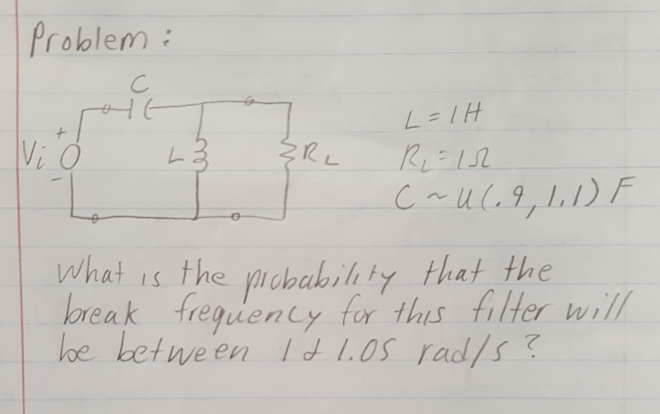 Problem:
C
+
Vi
-
L
RL
L = 1H
RL = 1Ω
C ~ U(.9, 1.1) F
What is the probability that the
break frequency for this filter will
be between 1 & 1.05 rad/s?